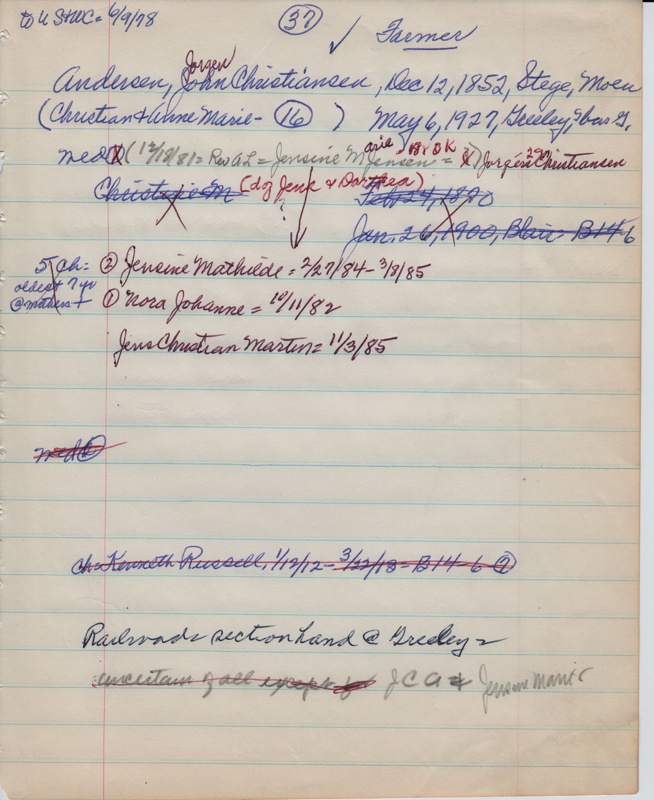 to U S+WC = 6/9/78
37
✓ Farmer
Jorgen
Andersen, John Christiansen, Dec 12, 1852, Stege, Moen
(Christian & Anne Marie - 16 ) May 6, 1927, Greeley,
med (12/18/81 = Rev A L = Jensine M Jensen = Jorgen Christiansen
arie OK 29
Christ M (dg Jens & Dorthea) Feb 24, 1880
?
Jan. 26, 1900, Blair B14-6
5 Ch = ② Jensine Mathilde = 2/27/84 - 3/8/85
oldest 7 yr
@ mothers + ① Nora Johanne = 10/11/82
Jens Christian Martin = 11/3/85
med
Ch = Kenneth Russell, 1/12/12 - 3/22/18 = B14-6
Railroad section hand @ Greeley =
uncertain of all except for J C A & Jensine Marie